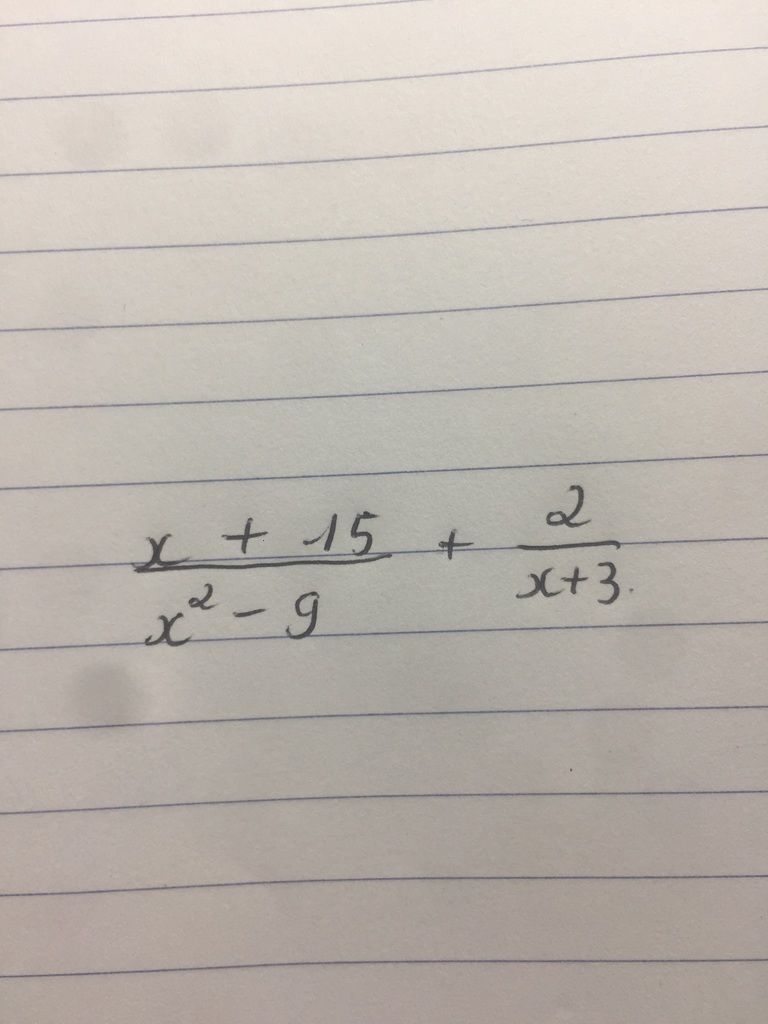 x + 15 / x² - 9 + 2 / x+3.